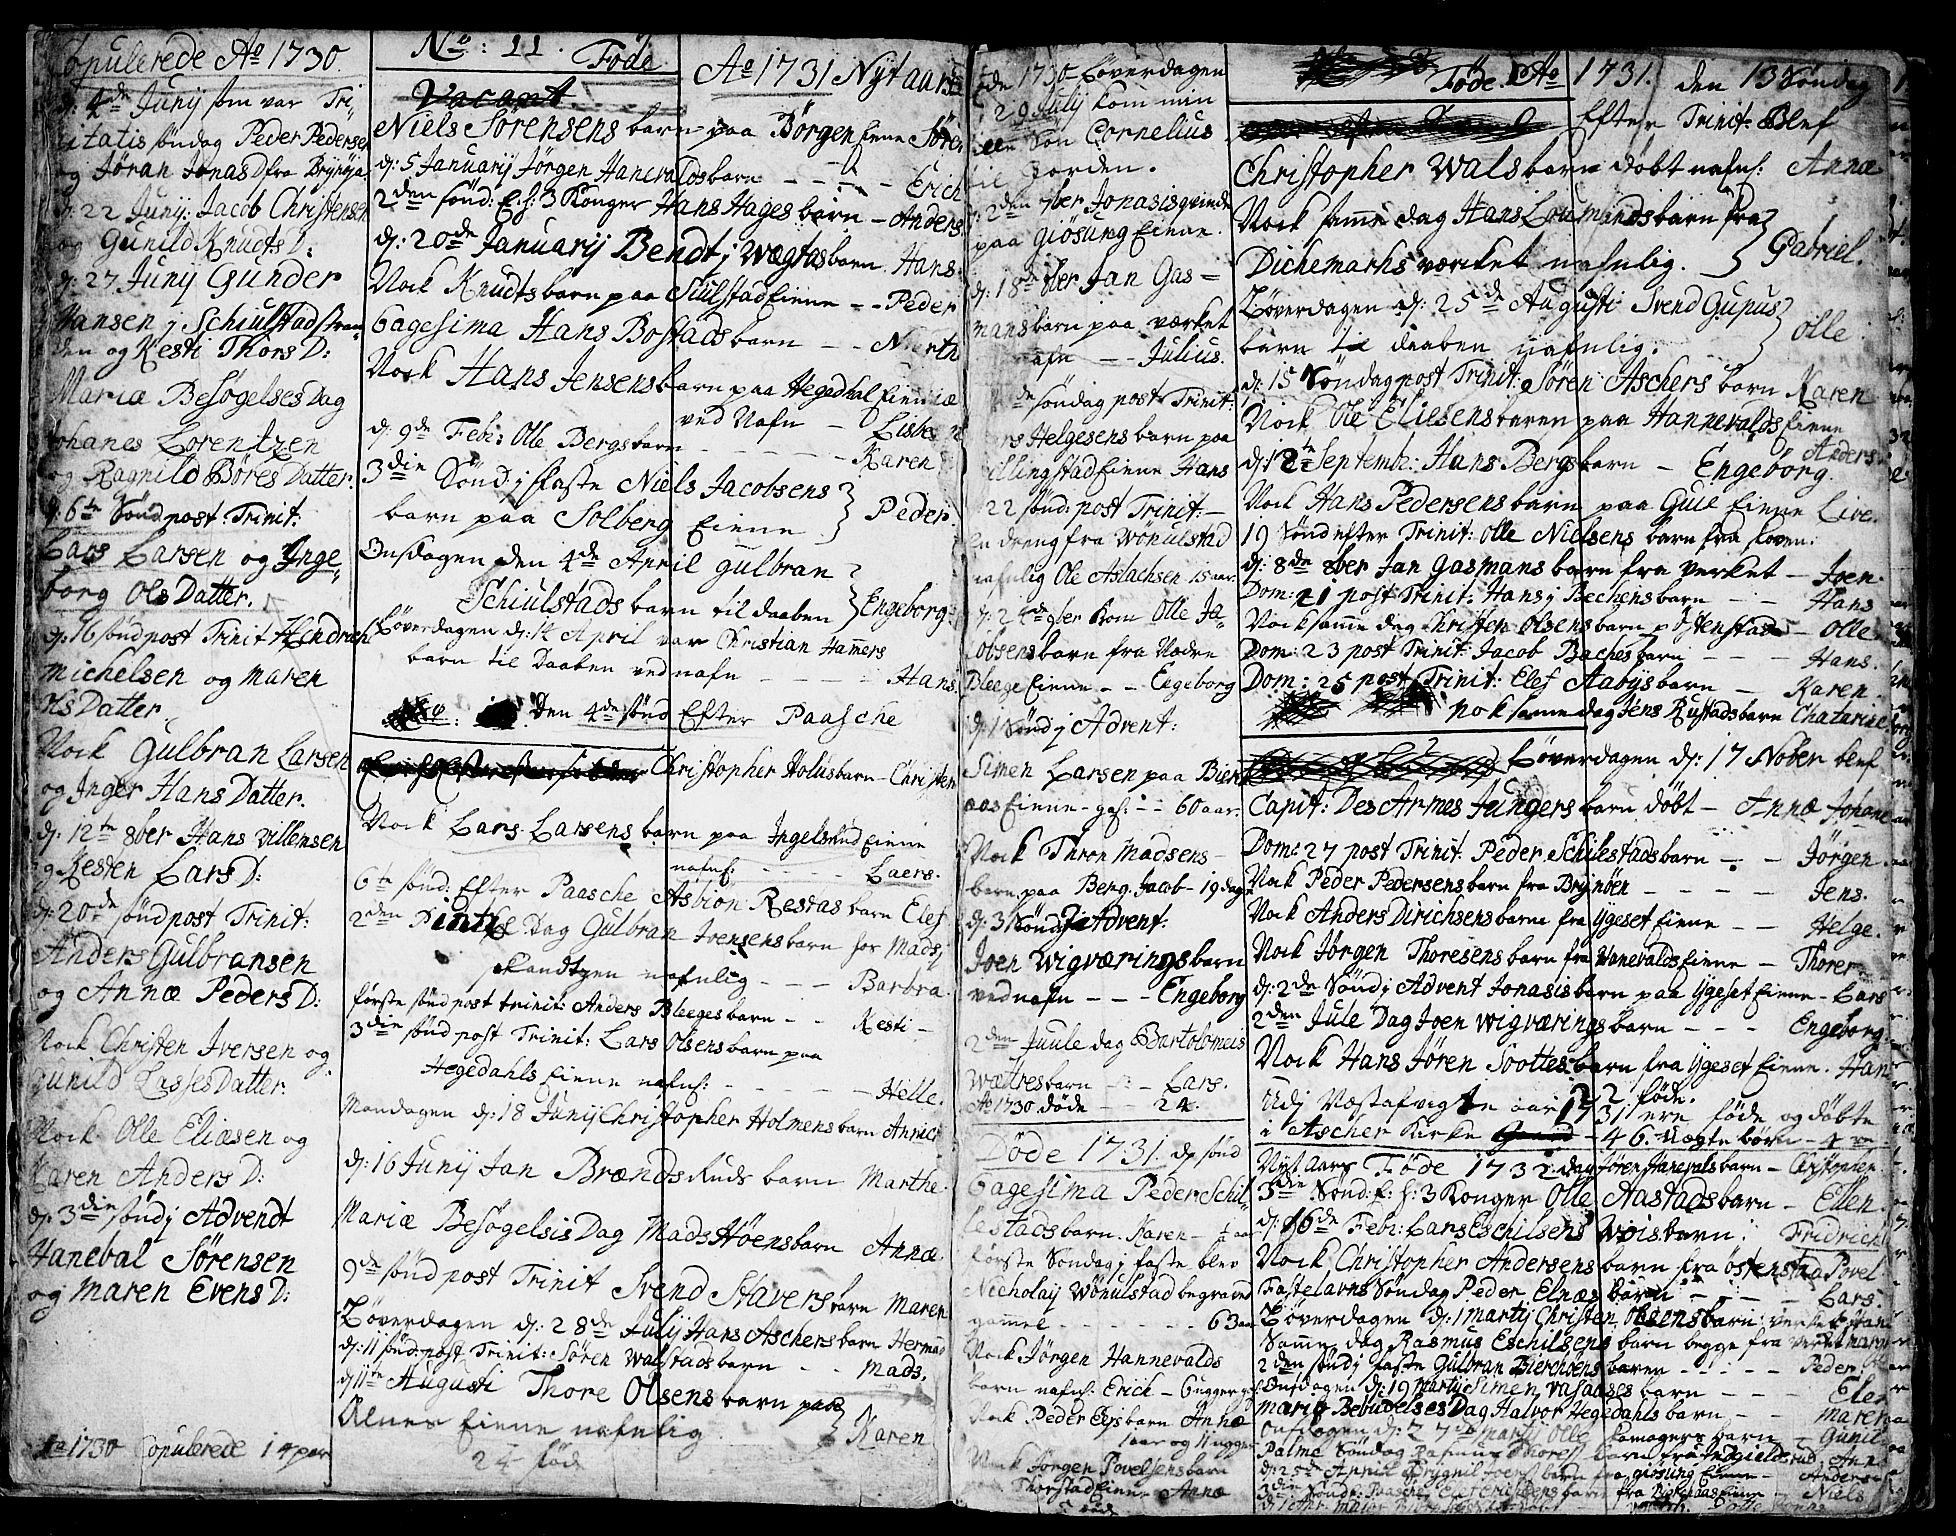 Copulerede Ao 1730.
d: 4de Junij som var Tri-
nitatis søndag Peder Pedersen
og Jøran JonasD fra Brynøja
d: 22 Junij: Jacob Christensen
og Gunild Knudts D:
d: 27 Junij Gunder
Hansen j Schiulstadstran-
den og Kesti Thors D:
Mariæ Besøgelses Dag
Johanes Lorentzen
og Ragnild Børes Datter.
d: 6te Sønd post: Trinit:
Lars Larsen og Inge-
borg Ols Datter.
d: 16 sønd post Trinit Hendrich
Michelsen og Maren
Datter
Nock Gulbran Larsen
og Inger Hans Datter.
d: 12te 8ber Hans Villumsen
og Kesten Lars D:
d: 20de sønd post Trinit:
Anders Gulbransen
og Annæ Peders D:
Nock Christen Iversen og
Gunild Lasses Datter.
Nock Olle Eliæsen og
Karen Anders D:
d: 3die sønd j Advendt
Hanebal Sørensen
og Maren Evens D:
Ao 1730 Copulerede 14 par
No: 11. Føde
Ao 1731 Nytaars
Vacant
Niels Sørensens barn paa Børgen Eiene Søren
d: 5 Januarij Jørgen Hanevalds barn - - - Erich
2den sønd: E: H: 3 Konger Hans Hages barn - Anders
d: 20de Januarij Bendt j Wægtas barn Hans
Nock Knudts barn paa Sculstad Eiene - - Peder
6agesima Hans Bostads barn - - Niurth
Nock Hans Jensens barn paa Hegedhal Eiene
ved Nafn - Lisbe
d: 9de Feb: Olle Bergs barn - - - Karen
3die Sønd j faste Niels Jacobsens
barn paa Solberg Eiene } Peder.
Onsdagen den 4de April Gulbran
Schiulstads barn til daaben } Engeborg:
Løverdagen d: 14 April var Christian Hamers
barn til Daaben ved nafn - - - - Hans
Den 4de sønd Efter Paasche
Christopher Holus barn - Christen
Nock Lars Larsens barn paa Ingelsrud Eiene
nafnl: - - - - Laers.
6te sønd: Efter Paasche Asbiøn Restas barn Elef
2den Pintze Dag Gulbran Joensens barn for Mads
skandtzen nafnlig - - - Barbra
første sønd post trinit: Anders Bleeges barn - - Kesti -
3die sønd post Trinit: Lars Olsens barn paa
Hegedahls Eiene nafnl: - - - - - Helle.
Mandagen d: 18 Junij Christopher Holmens barn Annic
d: 16 Junij Jan Brænds Ruds barn Marthe.
Mariæ Besøgelsis Dag Mads Høens barn Annæ.
9de sønd post Trinit Svend Stavers barn Maren
Løverdagen d: 28de Julij Hans Aschers barn Herman
d: 11 sønd: post Trinit: Søren Walstads barn - Mads.
d: 11te Augusti Thore Olsens barn paa
Alnes Eiene nafnlig } Karen
24 fød
Døde 1730 Løverdagen
d 29 Julij kom min
liden Søn Cornelius
til Jorden.
d: 2den 7ber Jonasis qvinde
paa Giøsung Eiene.
d: 18de 8ber Jan Gas=
mans barn paa værket
nafn - - Julius.
de søndag post Trinit:
Helgesens barn paa
Ellingstad Eiene Hans
22 sønd: post Trinit: -
En dreng fra Wønulstad
nafnlig Ole Aslachsen 15 aar
d: 24de 9ber kom Olle Ja-
cobsens barn fra Nedre
Bleege Eiene - - Engeborg
d: 1 Sønd j Advent:
Simen Larsen paa Bier
aas Eiene - gl: - - 60 aar.
Nock Thron Madsens
barn paa Berg. Jacob - 19 dage
d: 3 Sønd j Advent:
Joen Wigværings barn
ved nafn - - - Engeborg
2den Juule dag Bartolomeis
Wættres barn - - Lars.
Ao 1730 døde - - 24.
Døde 1731. dn sønd
6agesima Peder Schil-
lestads barn. Karen - ½ aar
første Søndag j faste blev
Nicholaij Wønulstad begraved
gammel - - - - - 63 aar
Nock Jørgen Hannevalds
barn nafnl: Erich - 6 uger gl:
Nock Peder Eijs barn Annæ
1 aar og 11 uger
Nock Jørgen Povelsens barn
Thorstad Eiene Annæ
Føde. Ao 1731. den 13 Søndag
Efter Trinit: Blef
Christopher Wals barn døbt nafnl: Annæ
Nock samme dag Hans Loumands barn fra
Dichemarks værcket nafnlig. } Gabriel.
Løverdagen d: 25de Augusti Svend Gupus
barn til daaben nafnlig. } Olle
d: 15 Søndag post Trinit: Søren Aschers barn Karen
Nock Ole Eliesens baren paa Hannevalds Eiene
Anders.
d: 12te Septembr: Hans Bergs barn - Engeborg.
Nock Hans Pedersens barn paa Gue Eiene Live.
19 Sønd efter Trinit: Olle Nielsens barn fra skoven:
d: 8de 8ber Jan Gasmans barn fra Verket - Joen.
Dom: 21 post: Trinit: Hans j Bechens barn - - Hans
Nock samme dag Christen Olsens barn p Østenstad - Olle
Dom: 23 post Trinit: Jacob Baches barn - - - Hans.
Dom: 25 post Trinit: Elef Aabys barn - Karen
nok samme dag Jens Rustads barn Chatarine
Løverdagen d: 17 Nober blef
Capit: Des Armes Jungers barn døbt - Annæ Johane
Dom: 27 post Trinit: Peder Schilestads barn - - Jørgen
Nock Peder Pedersens barn fra Brynøen - - - - Jens.
Nock Anders Dirichsens barn fra Ygeset Eiene - - Helge.
Nock Jørgen Thoresens barn fra Wanevalds Eiene - Thorer
d: 2de Sønd j Advent Jonasis barn paa Ygeset Eiene - Lars
2den Jule Dag Joen Wigværings barn - - - Engeborg
Nock Hans Jøren Soottes barn fra Ygeset Eiene. Han
22 føde.
Udj Næst afvigte aar 1731 ere føde og døbte
i Ascher Kirke - 46. Uægte børn - 4re
Nyt Aars Føde 1732. dag Jøren Hanevals barn - Christopher
3die Sønd: E: H: 3 Konger Olle Aastads barn - Ellen.
d: 16de Feb: Lars Eschilsens Wois barn: Fridrich
Nock Christopher Andersens barn fra Østenstad Povel
Fastelavns Søndag Peder Elnæs barn - - - Lars.
Løverdagen d: 1 Martij Christen Olsens barn: verket
Samme dag Rasmus Eschilsens barn begge fra verket Maren
2den sønd j faste Gulbran Bierchens baren - - - - Peder
Onsdagen d: 19 Martij Simen Vasaases barn - - Elen
Mariæ Bebudelses Dag Halvor Hegedahls barn - - Maren
Onsdagen d: 27 Martij Olle Hamagers barn - Gunil
Palme Søndag Rasmus Thores barn fra Ingieldsrud Ann
d: 25de April Brygnil Joens barn fra Giøsung Eiene - Anders
fra Biørkaas Eiene - Niels